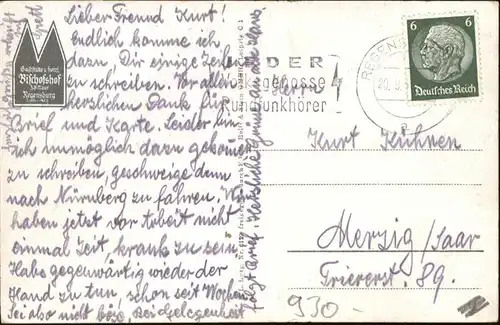 Lieber Freund Kurt!
Endlich komme ich
dazu, Dir einige Zeilen
zu schreiben. Vor allem
herzlichen Dank für
Brief und Karte. Leider bin
ich unmöglich dazu gekommen
zu schreiben, geschweige denn
nach Nürnberg zu fahren. Wir
haben jetzt vor Arbeit nicht
einmal Zeit, krank zu sein
Habe gegenwärtig wieder der
Hand zu tun, schon seit Wochen.
Sei also nicht böse, bei Gelegenheit
folgt Brief. Herzliche Grüsse an alle
Gaststätte u. Hotel
Bischofshof
Regensburg
REGENS
20. 9.
6 6
Deutsches Reich
DER
Rundfunkhörer
Herrn
Kurt Kühnen
Merzig/Saar
Triererst. 89.
930-